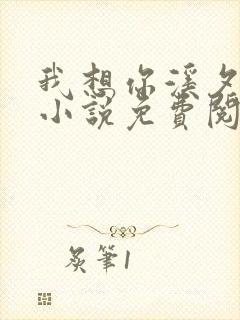 我想你溪夕
小說免費閱
炙筆1